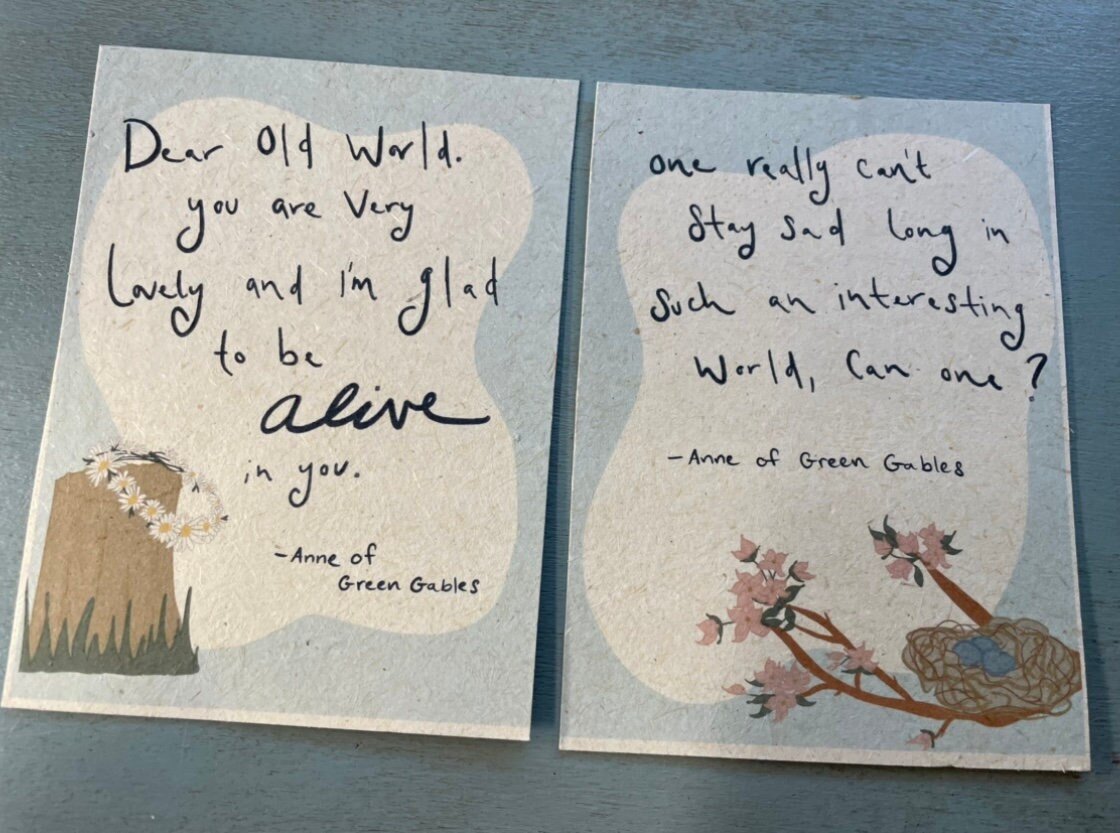 Dear Old World.
you are Very
Lovely and i'm glad
to be
alive
in you.
-Anne of
Green Gables
one really can't
Stay sad long in
Such an interesting
World, Can one?
-Anne of Green Gables